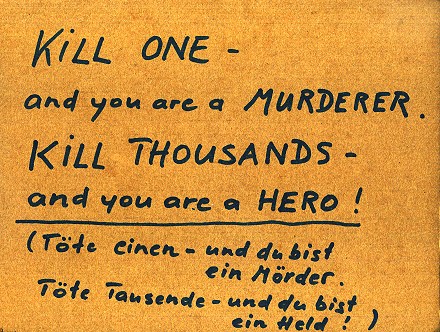 KiLL ONE -
and you are a MURDERER.
KiLL THOUSANDS -
and you are a HERO !
(Töte einen - und du bist
ein Mörder.
Töte Tausende - und du bist
ein Held ! )